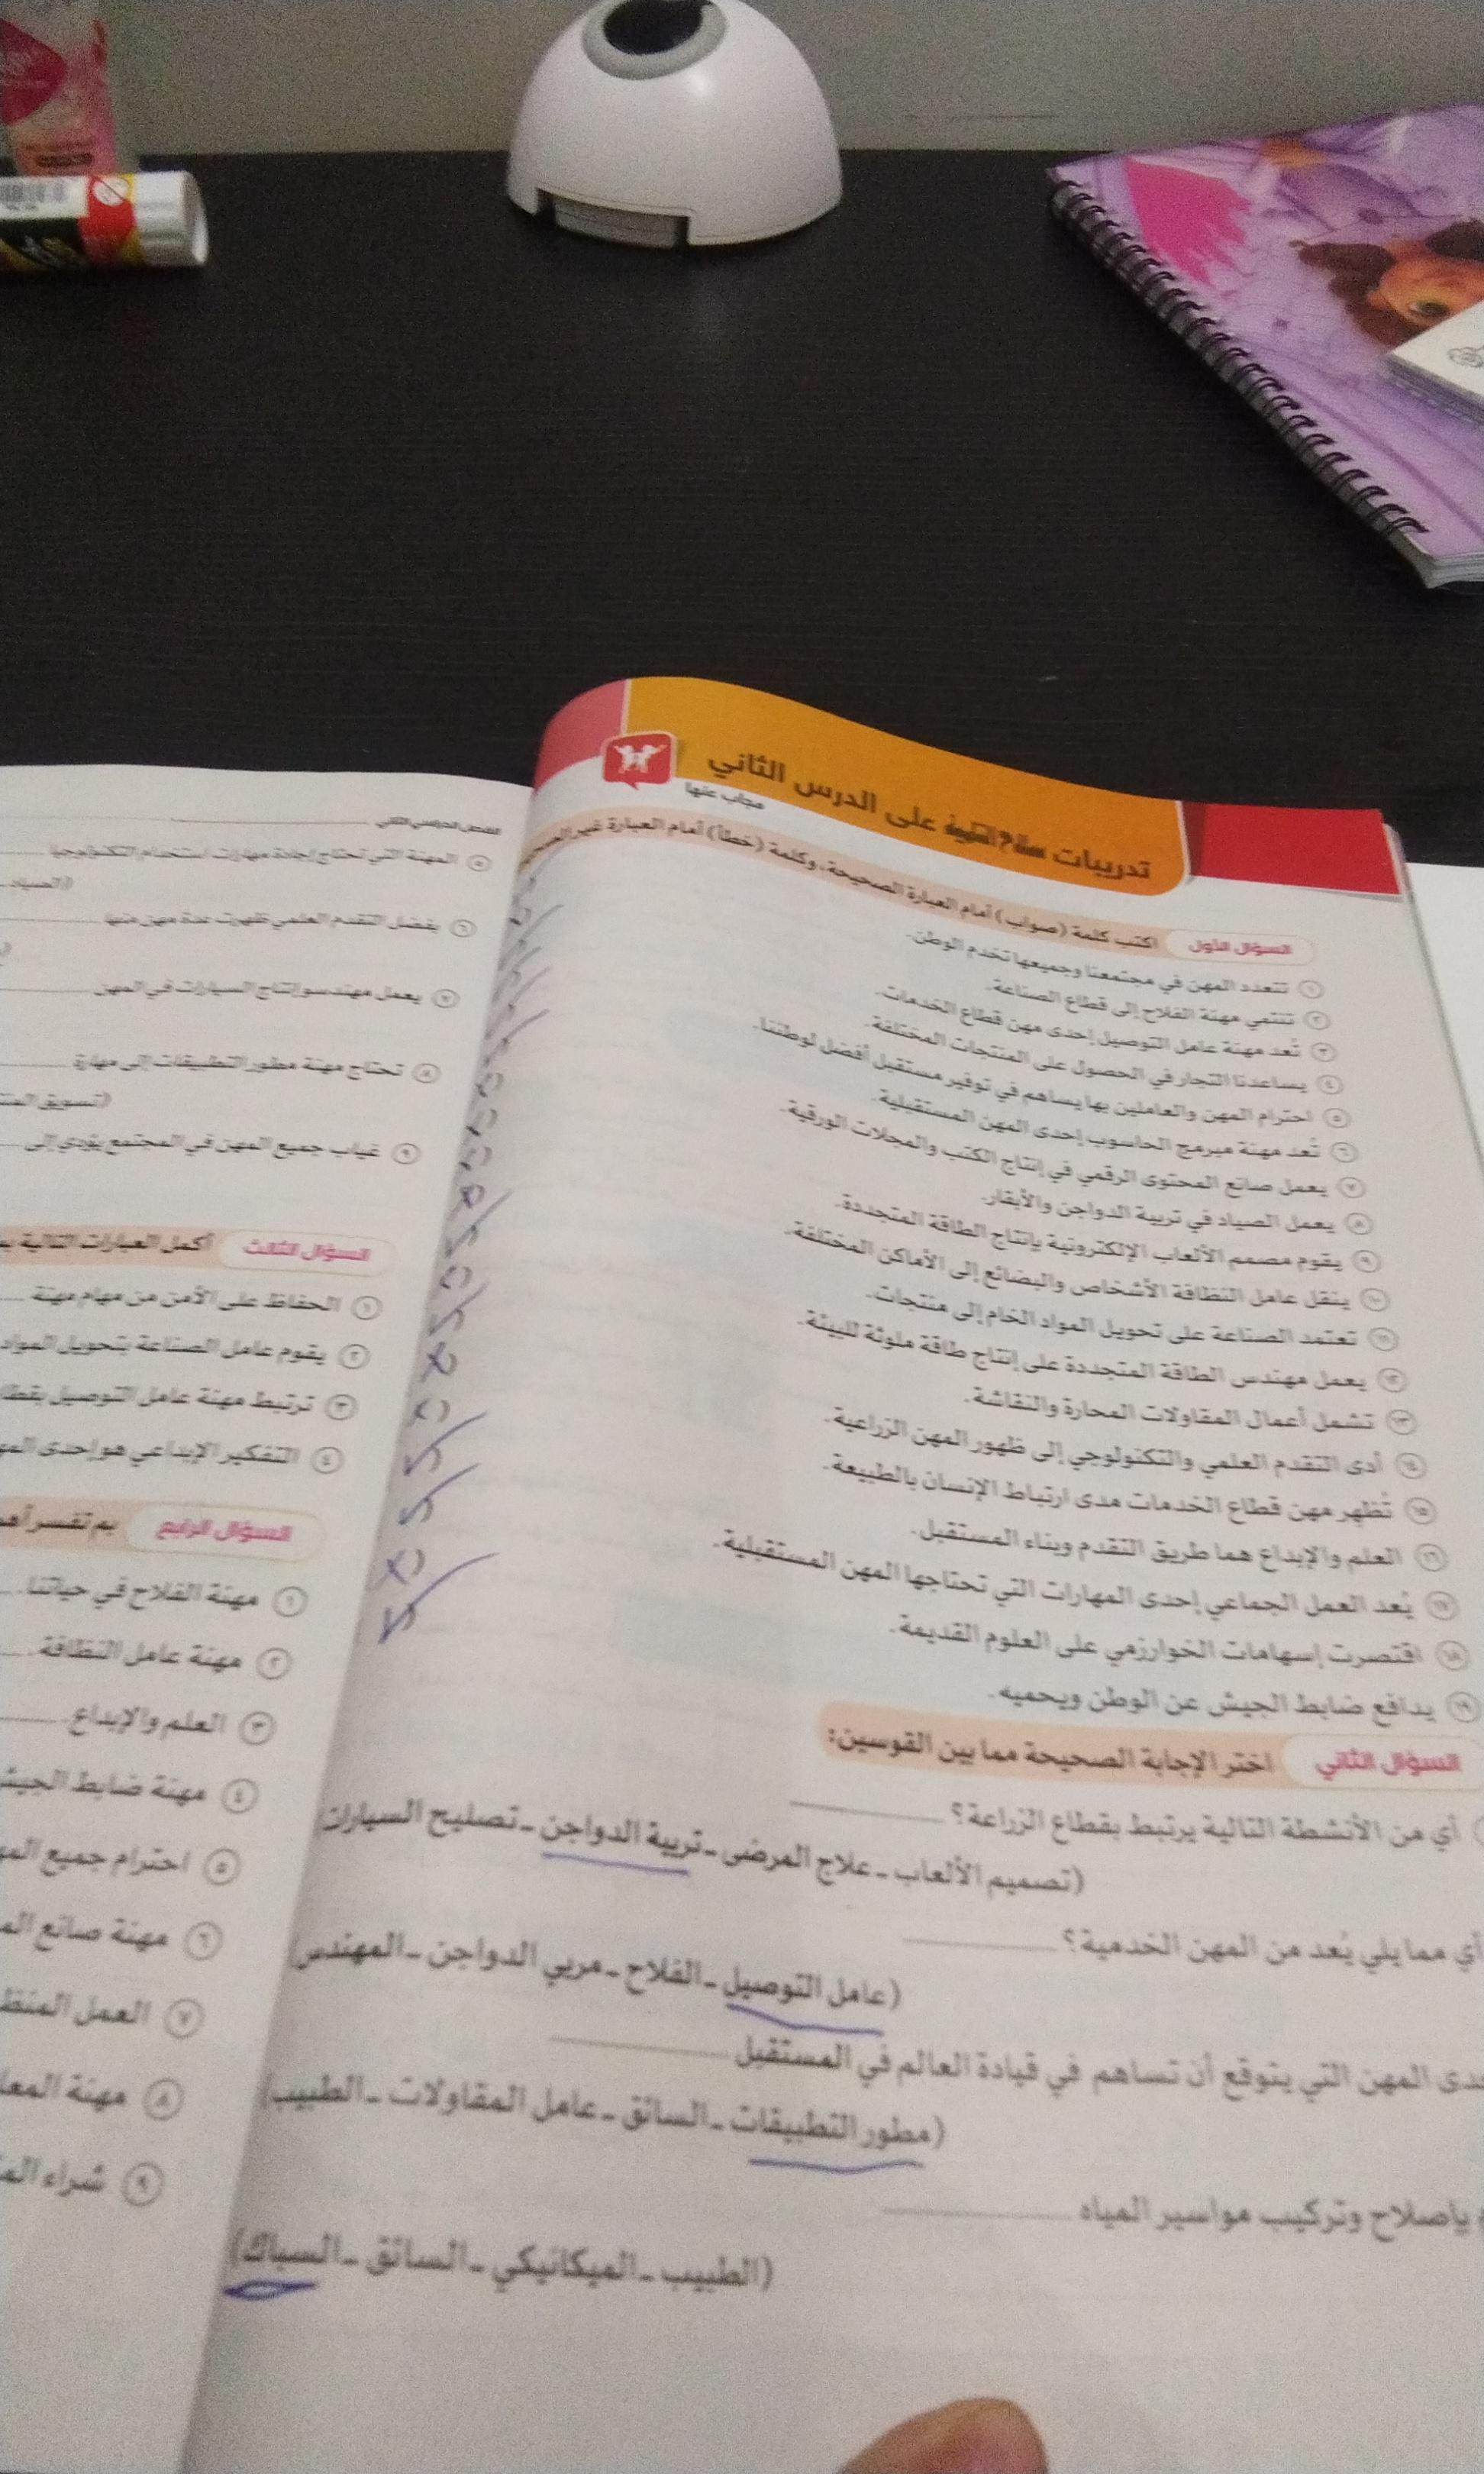 تدريبات سلاح التلميذ على الدرس الثاني
مجاب عنها
السؤال الأول اكتب كلمة (صواب) أمام العبارة الصحيحة، وكلمة (خطأ) أمام العبارة غير
١ تتعدد المهن في مجتمعنا وجميعها تخدم الوطن.
٢ تنتمي مهنة الفلاح إلى قطاع الصناعة.
٣ تُعد مهنة عامل التوصيل إحدى مهن قطاع الخدمات.
٤ يساعدنا التجار في الحصول على المنتجات المختلفة.
٥ احترام المهن والعاملين بها يساهم في توفير مستقبل أفضل لوطننا.
٦ تُعد مهنة مبرمج الحاسوب إحدى المهن المستقبلية.
٧ يعمل صانع المحتوى الرقمي في إنتاج الكتب والمجلات الورقية.
٨ يعمل الصياد في تربية الدواجن والأبقار.
٩ يقوم مصمم الألعاب الإلكترونية بإنتاج الطاقة المتجددة.
١٠ ينقل عامل النظافة الأشخاص والبضائع إلى الأماكن المختلفة.
١١ تعتمد الصناعة على تحويل المواد الخام إلى منتجات.
١٢ يعمل مهندس الطاقة المتجددة على إنتاج طاقة ملوثة للبيئة.
١٣ تشمل أعمال المقاولات المحارة والنقاشة.
١٤ أدى التقدم العلمي والتكنولوجي إلى ظهور المهن الزراعية.
١٥ تُظهر مهن قطاع الخدمات مدى ارتباط الإنسان بالطبيعة.
١٦ العلم والإبداع هما طريق التقدم وبناء المستقبل.
١٧ يُعد العمل الجماعي إحدى المهارات التي تحتاجها المهن المستقبلية.
١٨ اقتصرت إسهامات الخوارزمي على العلوم القديمة.
١٩ يدافع ضابط الجيش عن الوطن ويحميه.
السؤال الثاني اختر الإجابة الصحيحة مما بين القوسين:
أي من الأنشطة التالية يرتبط بقطاع الزراعة؟
(تصميم الألعاب - علاج المرضى - تربية الدواجن - تصليح السيارات
أي مما يلي يُعد من المهن الخدمية؟
(عامل التوصيل - الفلاح - مربي الدواجن - المهندس)
المهن التي يتوقع أن تساهم في قيادة العالم في المستقبل
(مطور التطبيقات - السائق - عامل المقاولات - الطبيب)
بإصلاح وتركيب مواسير المياه
(الطبيب - الميكانيكي - السائق - السباك)
الفصل الدراسي الثاني
٥ المهنة التي تحتاج إجادة مهارات استخدام التكنولوجيا
(الصياد -
٦ بفضل التقدم العلمي ظهرت عدة مهن منها
٧ يعمل مهندسو إنتاج السيارات في المهن
٨ تحتاج مهنة مطور التطبيقات إلى مهارة
(تسويق
٩ غياب جميع المهن في المجتمع يؤدي إلى
السؤال الثالث أكمل العبارات التالية
١ الحفاظ على الأمن من مهام مهنة
٢ يقوم عامل الصناعة بتحويل المواد
٣ ترتبط مهنة عامل التوصيل
٤ التفكير الإبداعي هو إحدى
السؤال الرابع بم تفسر
١ مهنة الفلاح في حياتنا
٢ مهنة عامل النظافة.
٣ العلم والإبداع.
٤ مهنة ضابط
٥ احترام جميع
٦ مهنة صانع
٧ العمل
٨ مهنة
٩ شراء